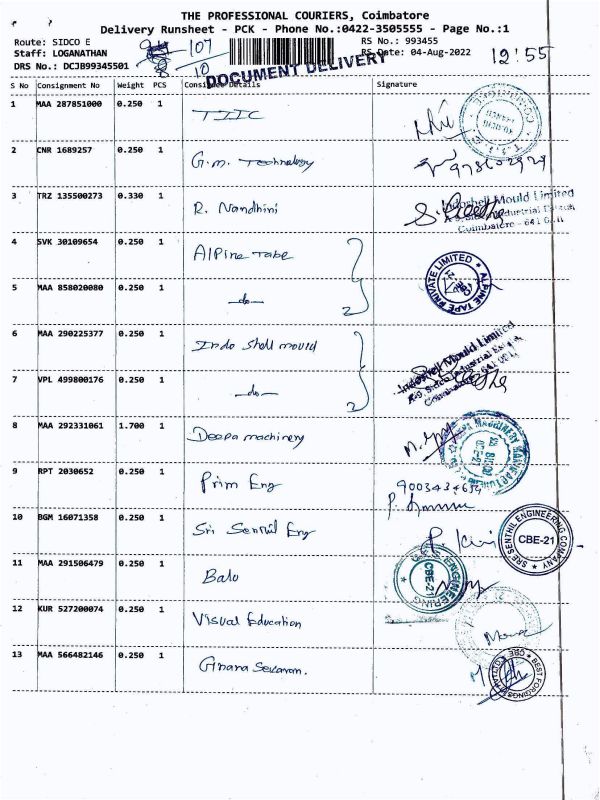 THE PROFESSIONAL COURIERS, Coimbatore
Delivery Runsheet - PCK - Phone No.:0422-3505555 - Page No.:1
Route: SIDCO E
RS No.: 993455
Staff: LOGANATHAN
107
RS Date: 04-Aug-2022
12:55
DRS No.: DCJB99345501
10
DOCUMENT DELIVERY
S No Consignment No Weight PCS Consignee Details Signature
1 MAA 287851000 0.250 1 TIIC
2 CNR 1689257 0.250 1 G.M. Technology
3 TRZ 135500273 0.330 1 R. Nandhini
Indoshell Mould Limited
Coimbatore - 641 021
4 SVK 30109654 0.250 1 Alpine Tape
ALPINE TAPE PRIVATE LIMITED
5 MAA 858020080 0.250 1 -do- 2
6 MAA 290225377 0.250 1 Indo Shell mould
Indoshell Mould Limited
A-9 Sidco Industrial Estate
7 VPL 499800176 0.250 1 -do- 2
8 MAA 292331061 1.700 1 Deepa machinery
9 RPT 2030652 0.250 1 Prim Eng
9003434654
10 BGM 16071358 0.250 1 Sri Senthil Eng
SRE SENTHIL ENGINEERING COMPANY
CBE-21
11 MAA 291506479 0.250 1 Balu
ENGINEERING
CBE-21
12 KUR 527200074 0.250 1 Visual Education
13 MAA 566482146 0.250 1 Gnana Sekaran.
BEST FORGINGS
CBE